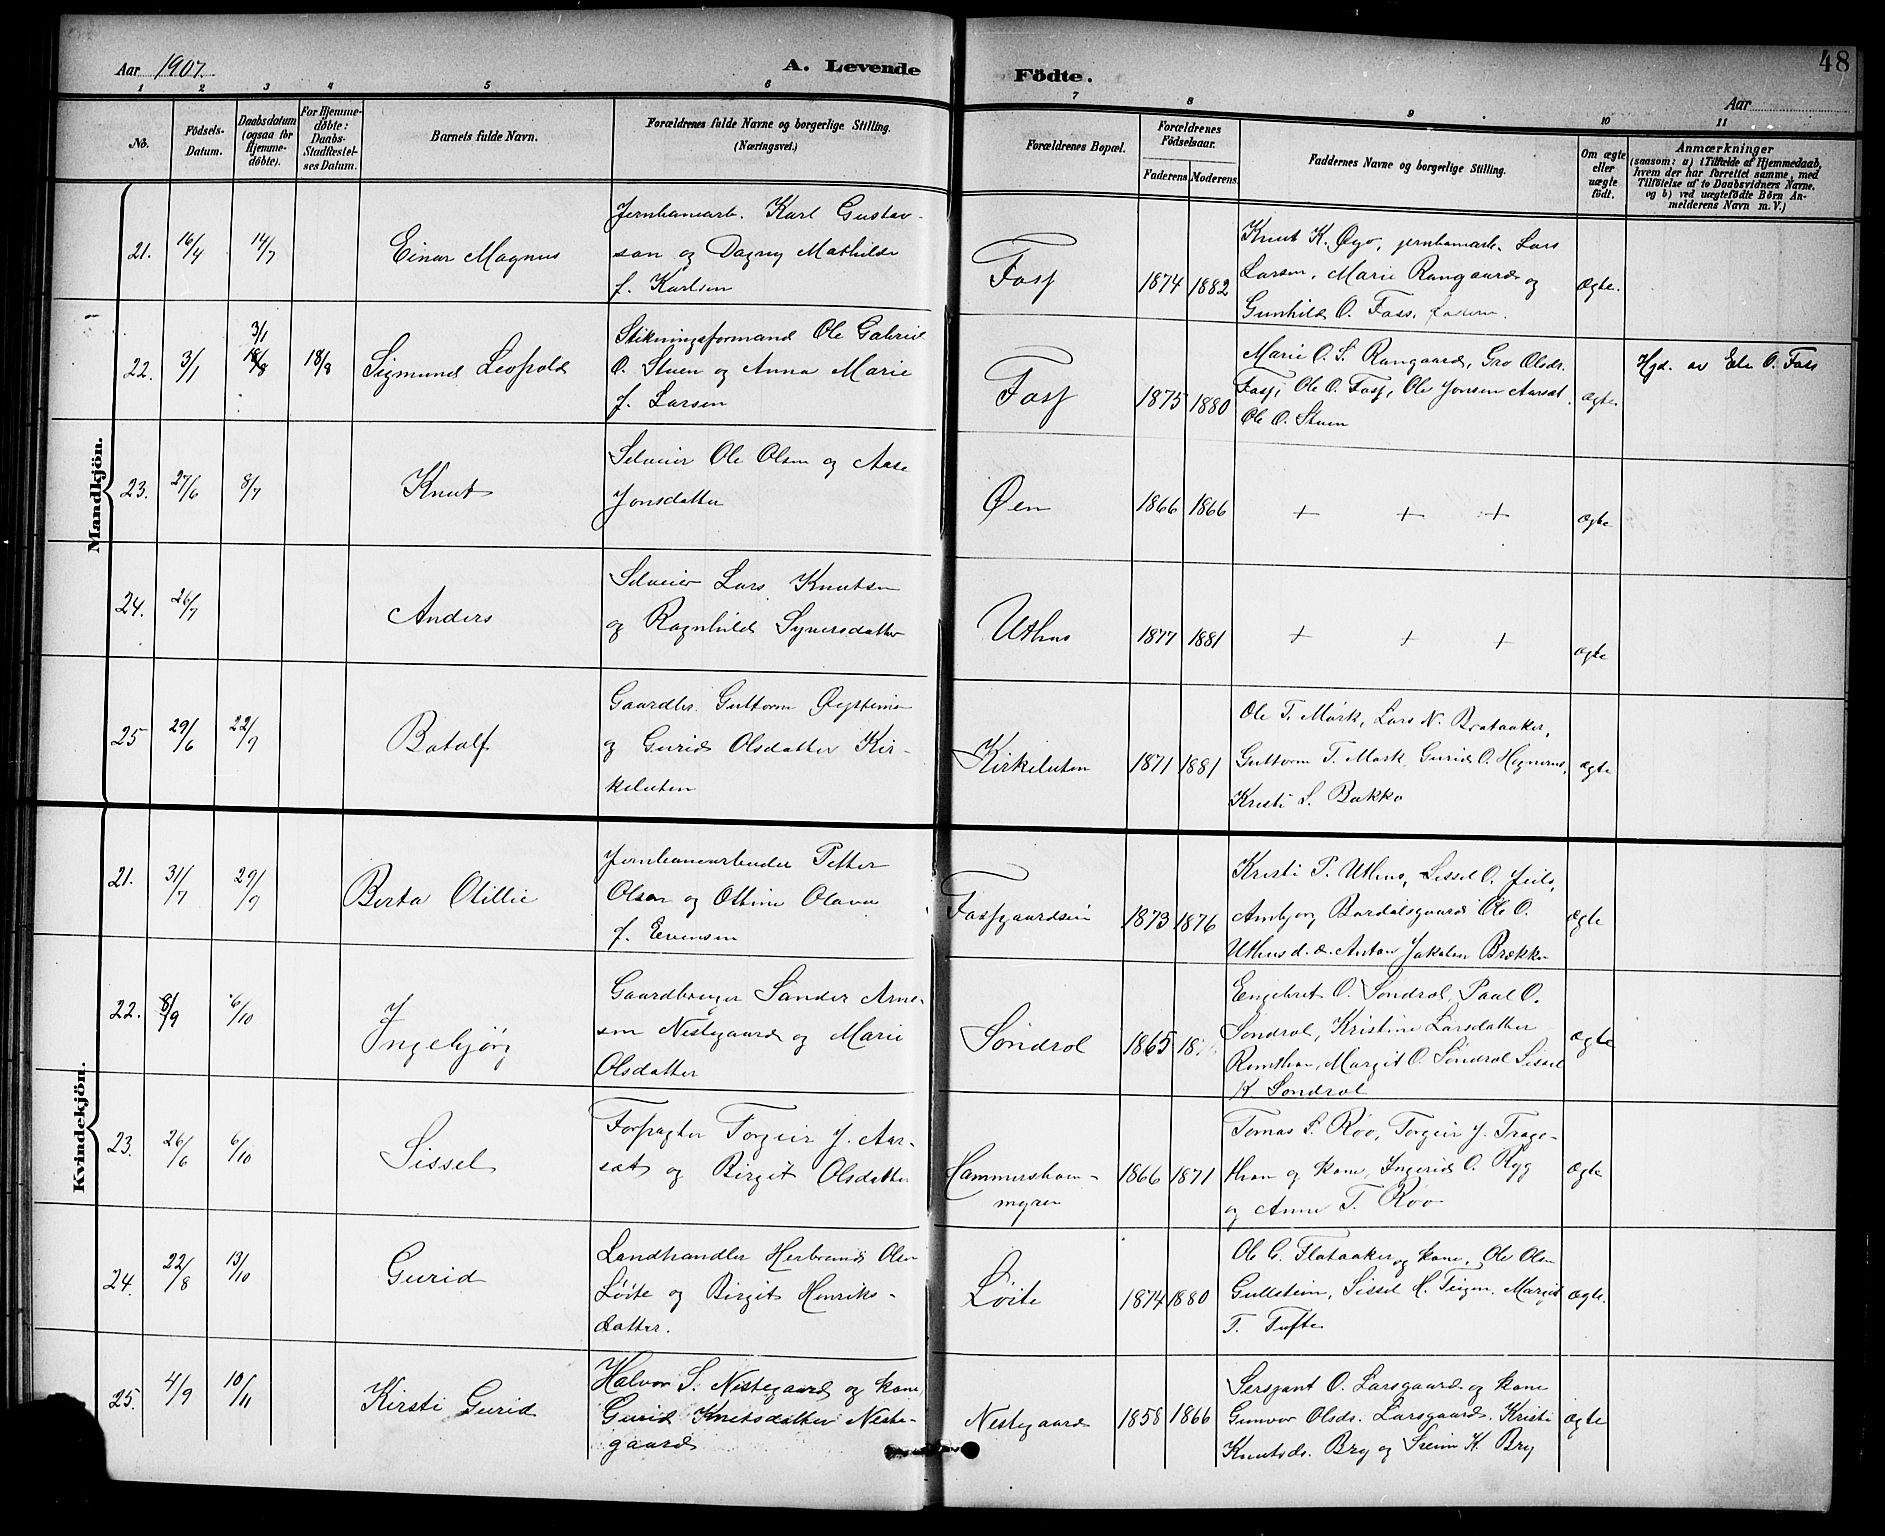 48
Aar 1907.
A. Levende
Födte.
Aar
1 2 3 4 5 6
7 8 9 10 11
No.
Födsels-
Datum.
Daabsdatum
(ogsaa for
Hjemme-
døbte).
For Hjemme-
døbte:
Daabs-
Stadfæstel-
ses Datum.
Barnets fulde Navn.
Forældrenes fulde Navne og borgerlige Stilling.
(Næringsvei.)
Forældrenes Bopæl.
Forældrenes
Födselsaar.
Faderens Moderens
Faddernes Navne og borgerlige Stilling.
Om ægte
eller
uægte
født.
Anmærkninger
(saasom: a) i Tilfælde af Hjemmedaab,
hvem der har forrettet samme, med
Tilföielse af to Daabsvidners Navne,
og b) ved uægtefödte Börn An-
melderens Navn m. V.)
Mandkjön.
21. 16/4 14/7 Einar Magnus
Jernbanearb. Karl Gustav-
son og Dagny Mathilde
f. Karlsen
Fosf 1874 1882
Knut K. Øyo, jernbanearb. Lars
Larsen, Marie Rangaard og
Gunhild O. Foss,
Ægte.
22. 3/1 3/1 18/8 18/8 Sigmund Leopold
Stikningsformand Ole Gabriel
O. Stuen og Anna Marie
f. Larsen
Fosf 1875 1880
Marie O. S. Rangaard, Gro Olsdr.
Fosf, Ole O. Fosf, Ole Jonsen Aarsat
Ole O. Stuen
ægte
Hjd. av Ele O. Foss
23. 27/6 8/7 Knut
Selveier Ole Olsen og Aase
Jonsdatter
Øen 1866 1866 + + + ægte
24. 26/7 Anders
Selveier Lars Knutsen
og Ragnhild Syversdatter
Uthus 1877 1881 + + + ægte
25 29/6 22/9 Botolf
Gaardbr. Guttorm Øysteins
og Gurid Olsdatter Kir-
keluten
Kirkeluten 1871 1881
Ole T. Mørk, Lars N. Brataaker,
Guttorm T. Mørk, Gurid O.
Kristi S. Bakko
ægte
Kvindekjön.
21. 31/7 29/9 Berta Otillie
Jernbanearbeider Petter
Olsen og Ottine Olava
f. Evensen
Fosfgaardseie 1873 1876
Kristi P. Uthus, Sissel O. Jeilo,
Ambjørg Bardalsgaard Ole O.
Uthus d. æ. Anton Jakobsen Brekke
Ægte
22. 8/9 6/10 Ingebjørg
Gaardbruger Sander Arne-
sen Nestegaard og Marie
Olsdatter
Søndrol 1865 18
Engebret O. Søndrol, Paal O.
Søndrol, Kristine Larsdatter
Margit O. Søndrol Sissel
K Søndrol
Ægte
23. 26/6 6/10 Sissel
Forpagter Torgeir J. Aar-
sat og Birgit Olsdatter
Hammersboen-
myren 1866 1871
Tomas S. Roo, Torgeir J. Trage-
thon og kone, Ingerid O. Ryg
og Anne T. Roo
Ægte
24. 22/8 13/10 Gurid
Landhandler Herbrand Olsen
Løite og Birgit Henriks-
datter.
Løite 1874 1880
Ole G. Flataaker og kone, Ole Olsen
Gullstein, Sissel H. Teigen, Margit
T. Tufte
Ægte.
25. 4/9 10/11 Kirsti Gurid
Halvor S. Nestegaard og kone
Gurid Knutsdatter Neste-
gaard
Nestegaard 1858 1866
Sersjant O. Larsgaard og kone
Gunvor Olsdr. Larsgaard. Kristi
Knutsdr. Bry og Svein K. Bry
Ægte